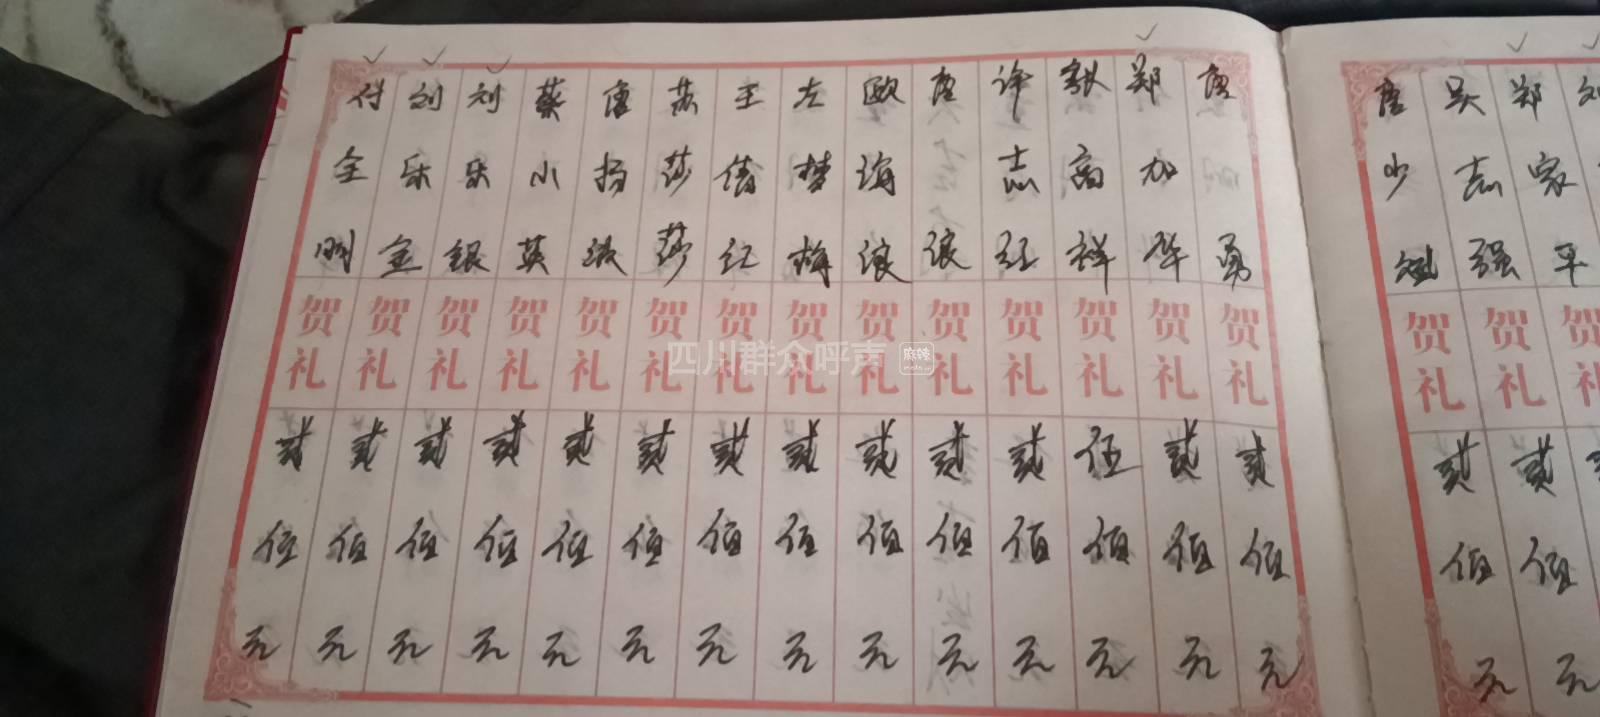 唐勇贺礼贰佰元
郑加华贺礼贰佰元
张高祥贺礼伍佰元
许志红贺礼贰佰元
唐浪贺礼贰佰元
欧海浪贺礼贰佰元
左梦梅贺礼贰佰元
王倩红贺礼贰佰元
苏莎莎贺礼贰佰元
唐扬波贺礼贰佰元
蔡小英贺礼贰佰元
刘乐银贺礼贰佰元
刘乐金贺礼贰佰元
付全明贺礼贰佰元
刘
郑家平贺礼
吴志强贺礼贰佰元
唐少贺礼贰佰元
四川群众呼声 麻辣